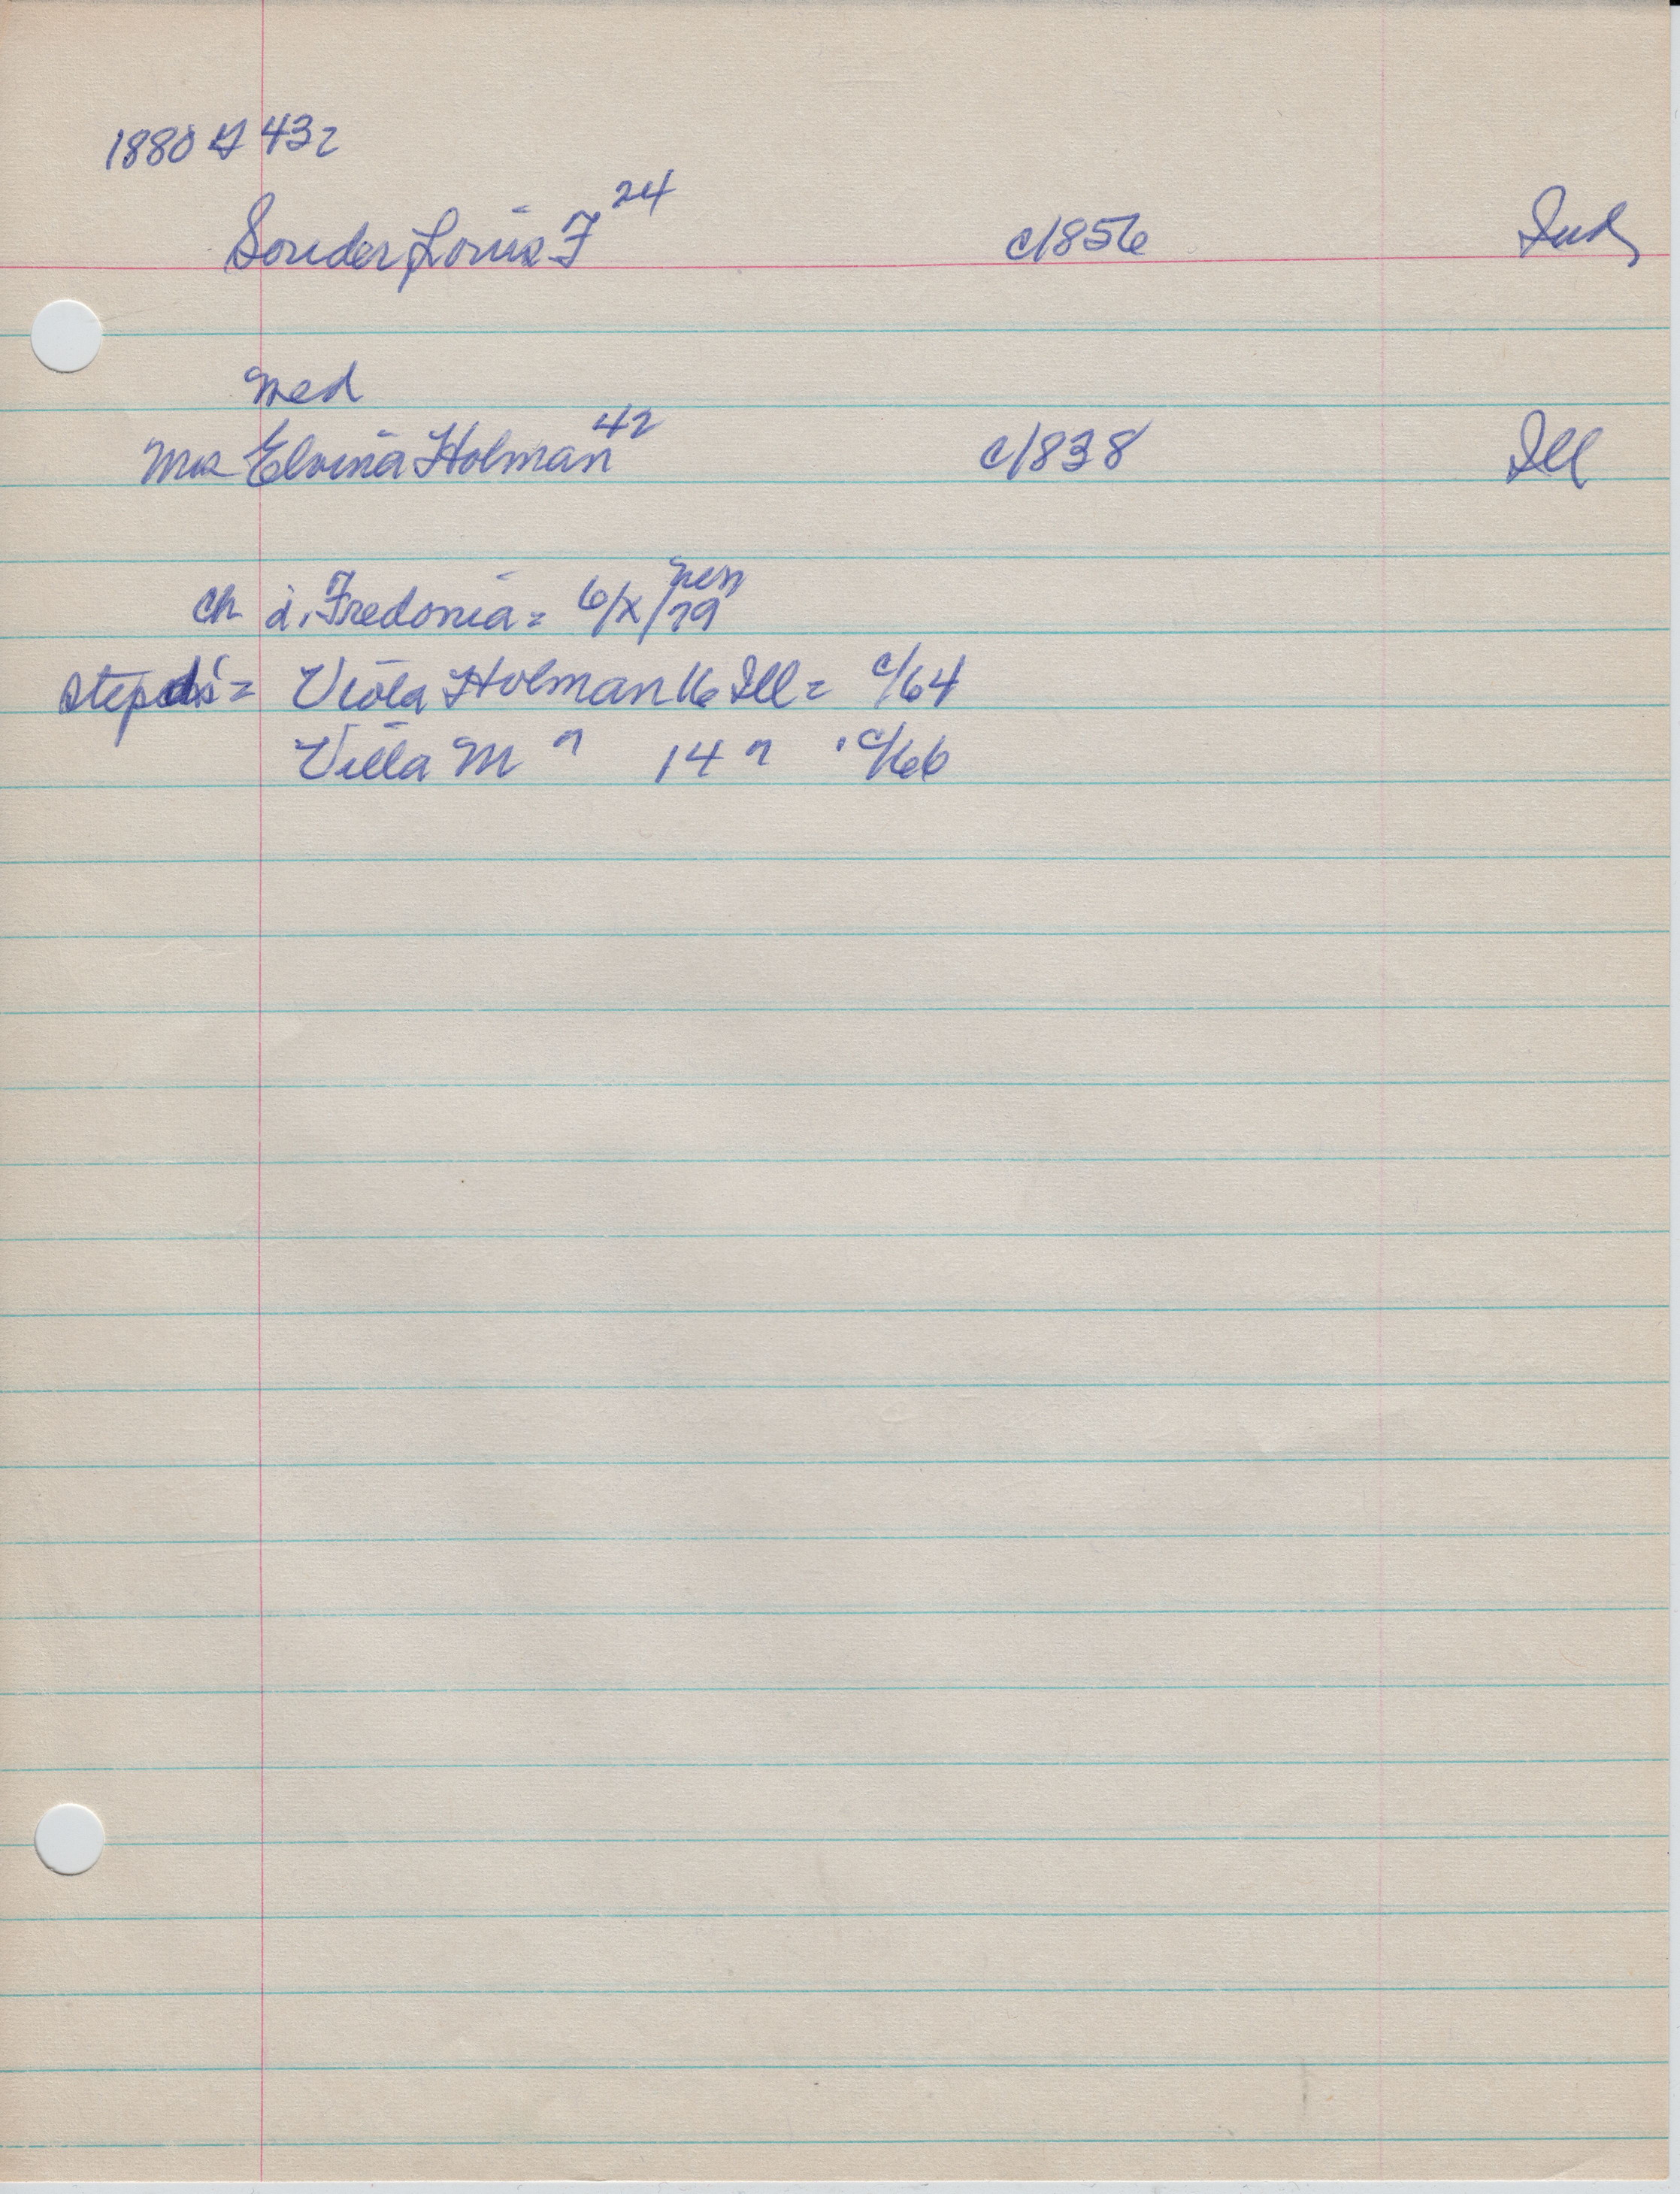 1880 G 432
Souder, Louis F 24 c/1856 Ind
Med
Mrs Elvina Holman 42 c/1838 Ill
Ch d. Fredonia = 6/x/79
stepds' = Viola Holman 16 Ill = c/64
Villa M " 14 " c/66